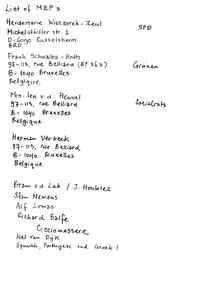 List of MEP's
Heidemarie Wieczorek-Zeul SPD
Michelstädter str. 1
D-6090 Rüsselsheim
BRD
Frank Schwalba-Hoth Grünen
97-113, rue Belliard
B-1040 Bruxelles
Belgique
Mrs. Ien v.d. Heuvel Socialists
97-113, rue Belliard
B-1040 Bruxelles
Belgique
Herman Verbeek
97-113, rue Belliard
B-1040 Bruxelles
Belgique
Bram v.d. Lek /
Stan Newens
Alf Lomas
Richard Balfe
Cicciomessere
Nel van Dijk
Spanish, Portugese and Greek!